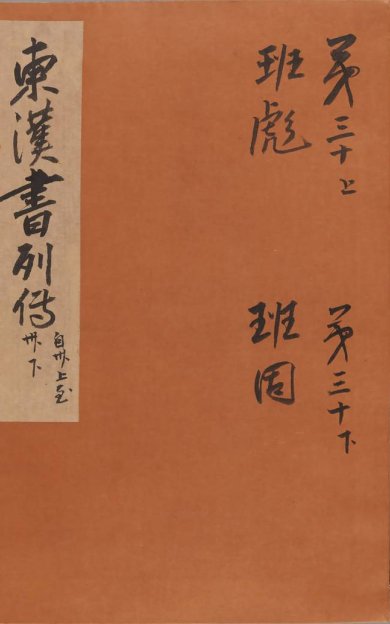 第三十上
班彪
第三十下
班固
東漢書列傳
自卅上至
卅下